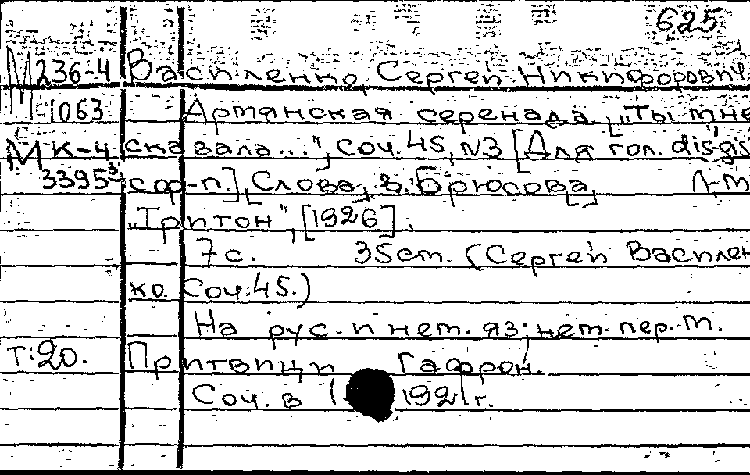 625
М 236-4 Василенко, Сергей Никифорович
-1063 Армянская серенада [„Ты мне
М К-4 сказала...", соч. 45, N3 [Для гол. dis-gis
3395³ сопр-п.], [Слова, В. Брюсова, Л-м
„Тритон", [1926].
7 с. 35 cm. (Сергей Василен
ко. Соч. 45.)
На рус. и нем. яз; нем. пер. М.
Т: 20. Притвиц и Гафрон.
Соч. в 1921 г.